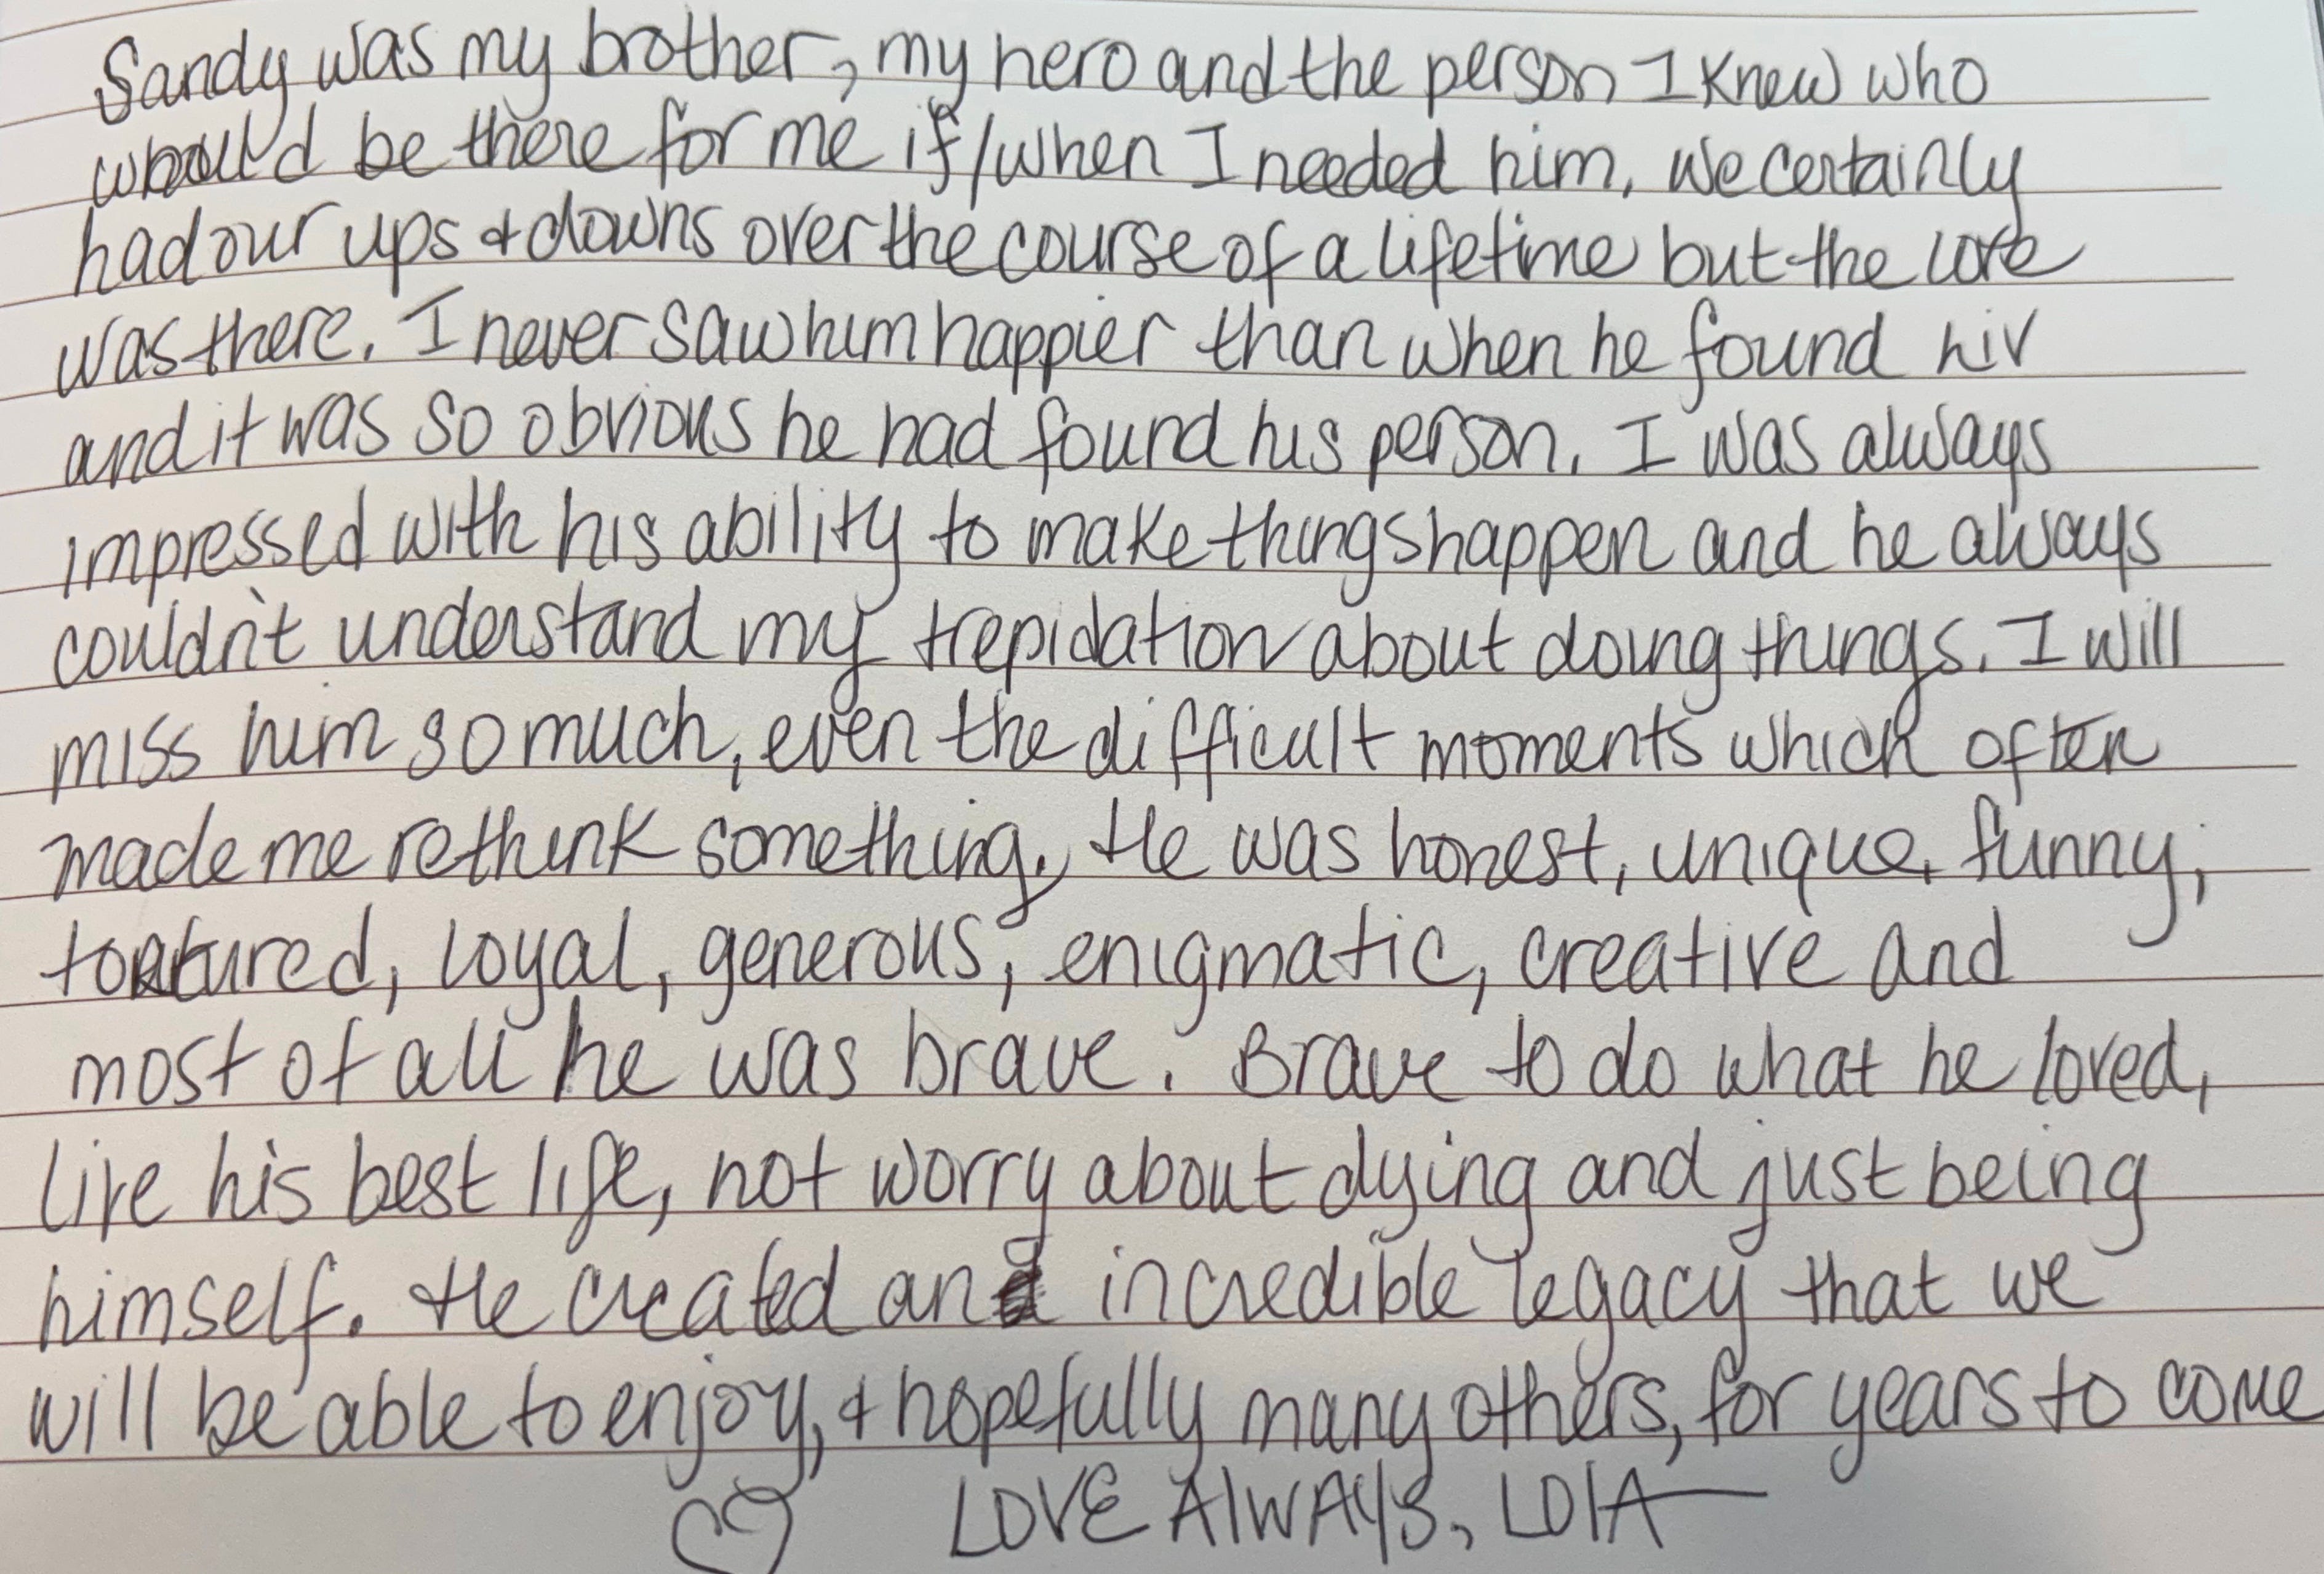 Sandy was my brother, my hero and the person I knew who
would be there for me if/when I needed him. We certainly
had our ups & downs over the course of a lifetime but the love
was there. I never saw him happier than when he found Liv
and it was so obvious he had found his person. I was always
impressed with his ability to make things happen and he always
couldn't understand my trepidation about doing things. I will
miss him so much, even the difficult moments which often
made me rethink something. He was honest, unique, funny,
tortured, loyal, generous, enigmatic, creative and
most of all he was brave. Brave to do what he loved,
live his best life, not worry about dying and just being
himself. He created an incredible legacy that we
will be able to enjoy, & hopefully many others, for years to come
♡ LOVE ALWAYS, LOLA